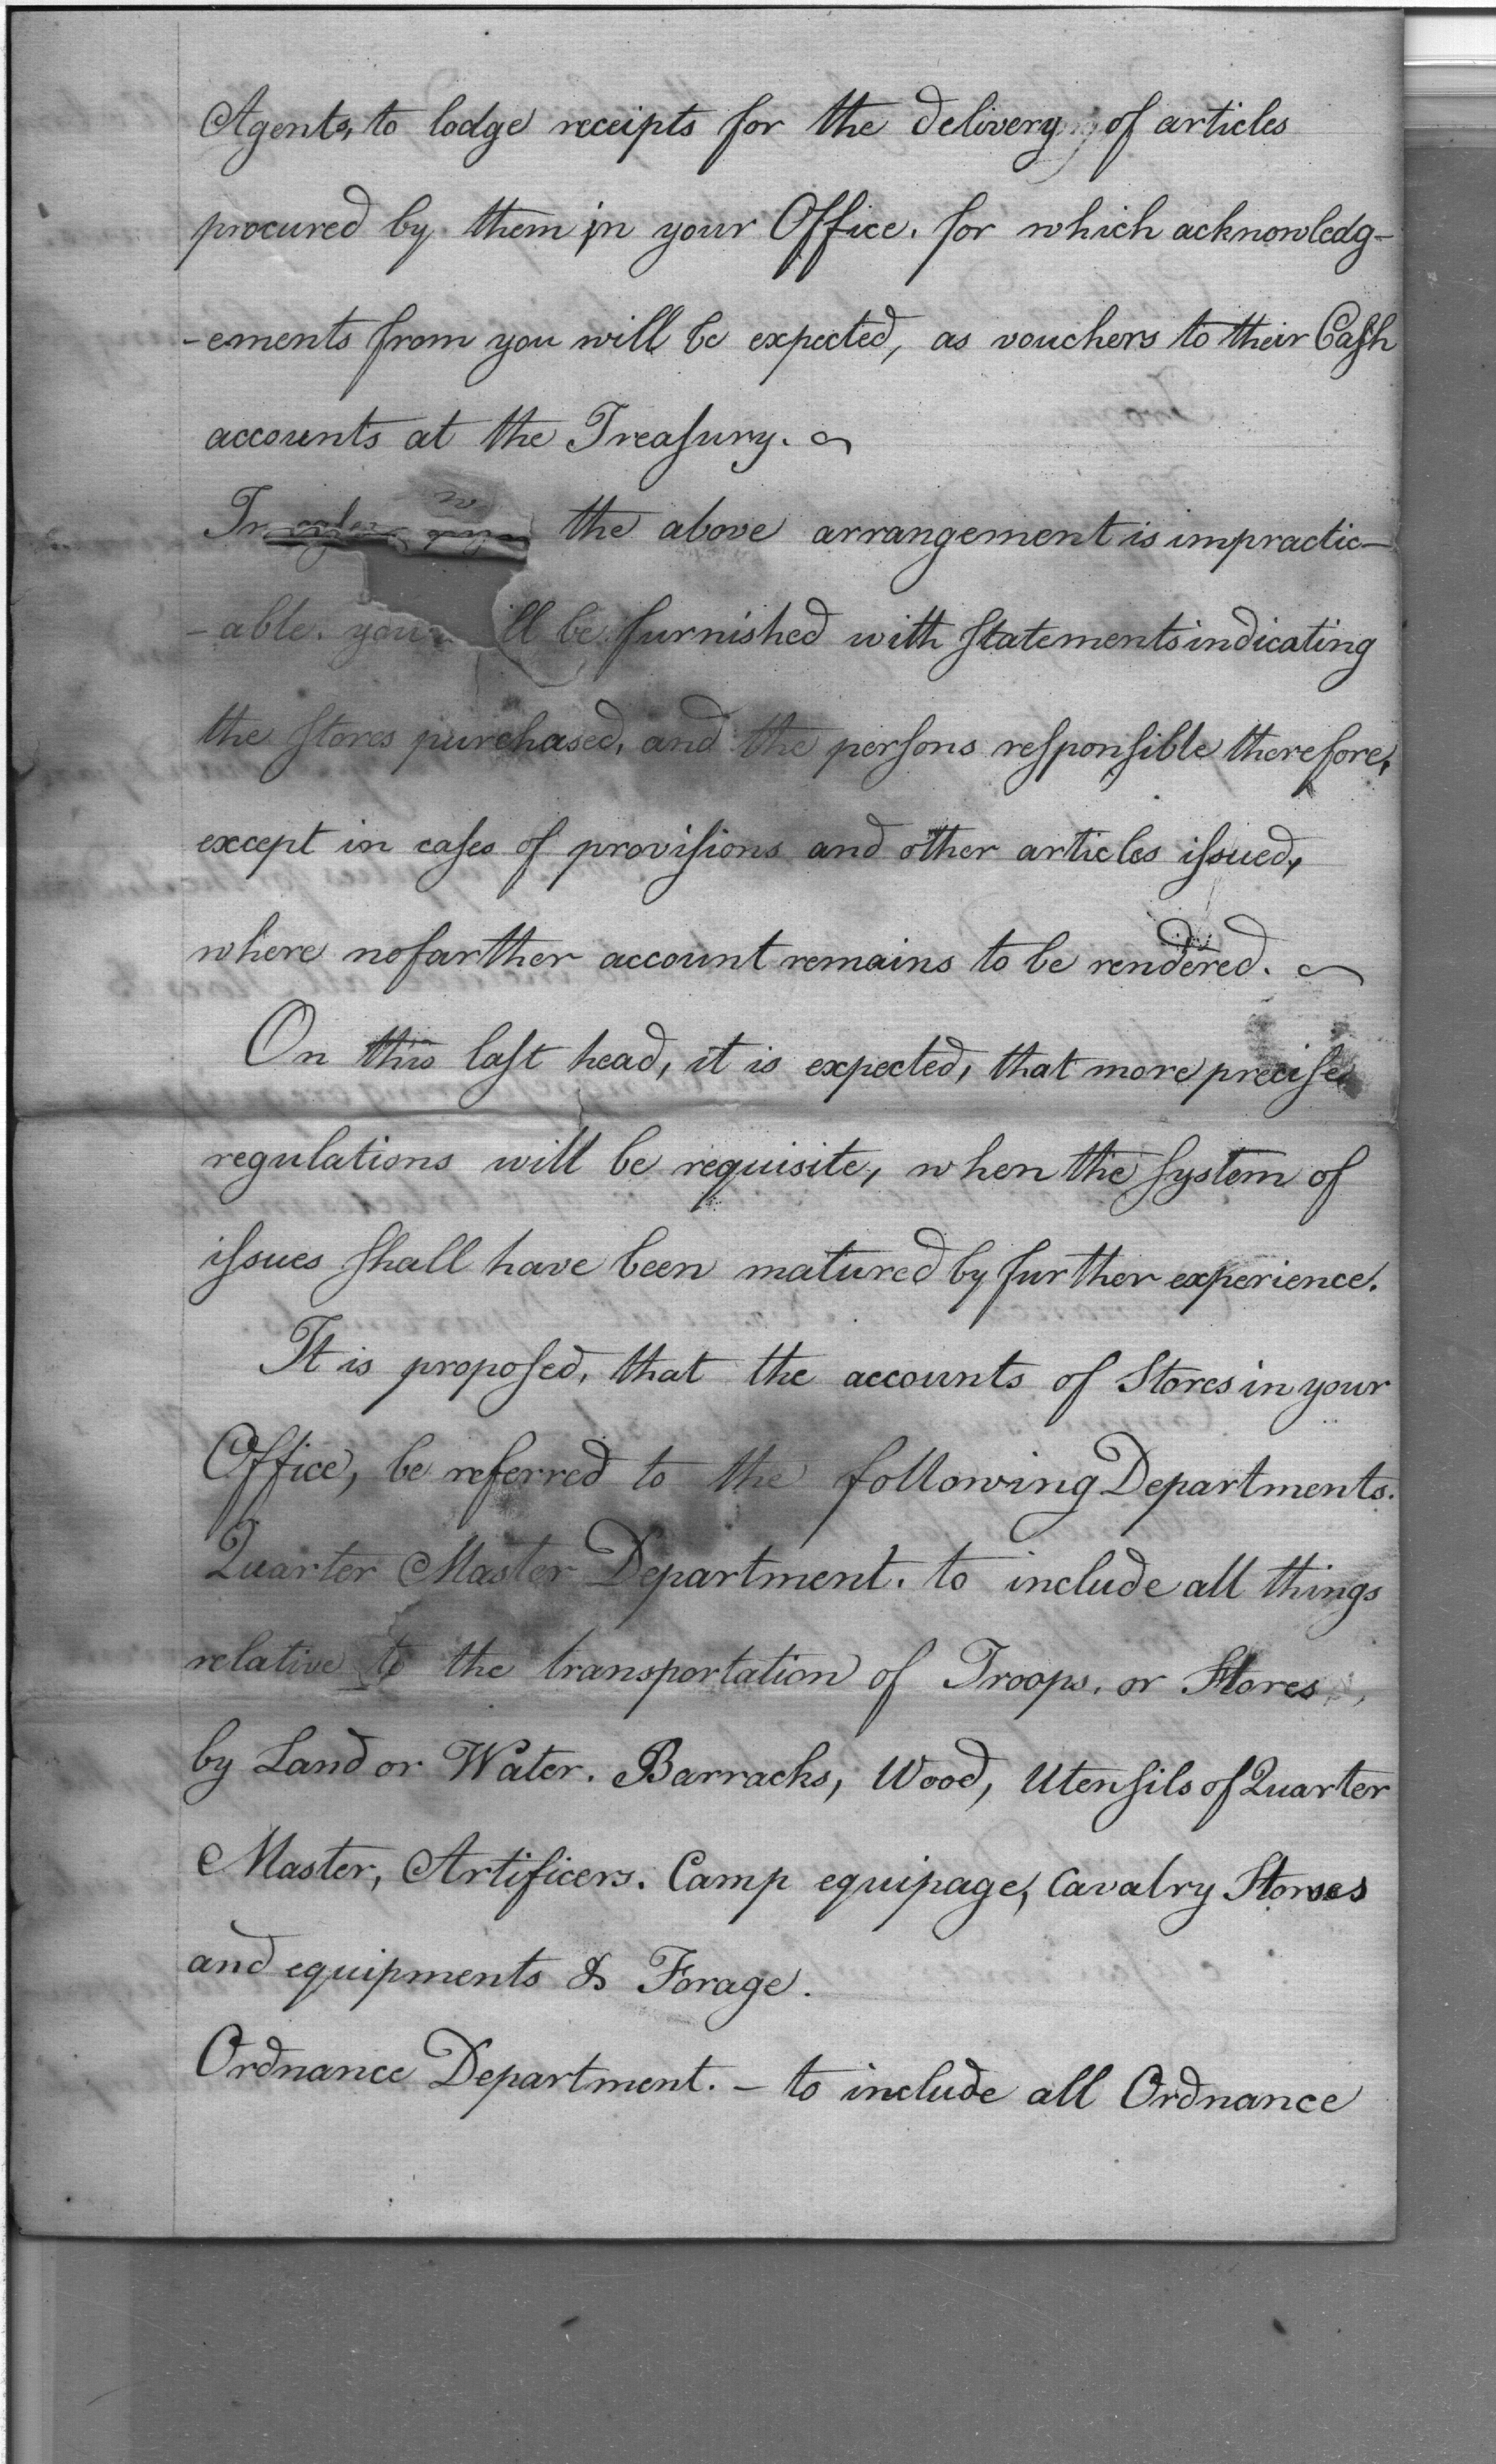 Agents, to lodge receipts for the delivery of articles
procured by them in your Office. for which acknowledg-
-ements from you will be expected, as vouchers to their Caſh
accounts at the Treaſury.
In the above arrangement is impractic-
-able. you ll be furnished with ſtatements indicating
the ſtores purchased, and the perſons reſponſible therefore,
except in caſes of proviſions and other articles iſsued,
where no farther account remains to be rendered.
On this laſt head, it is expected, that more preciſe
regulations will be requisite, when the ſystem of
iſsues ſhall have been matured by further experience.
It is propoſed, that the accounts of Stores in your
Office, be referred to the following Departments.
Quarter Master Department. to include all things
relative to the transportation of Troops, or Stores,
by Land or Water. Barracks, Wood, Utenſils of Quarter
Master, Artificers. Camp equipage, Cavalry Stores
and equipments & Forage.
Ordnance Department. - to include all Ordnance